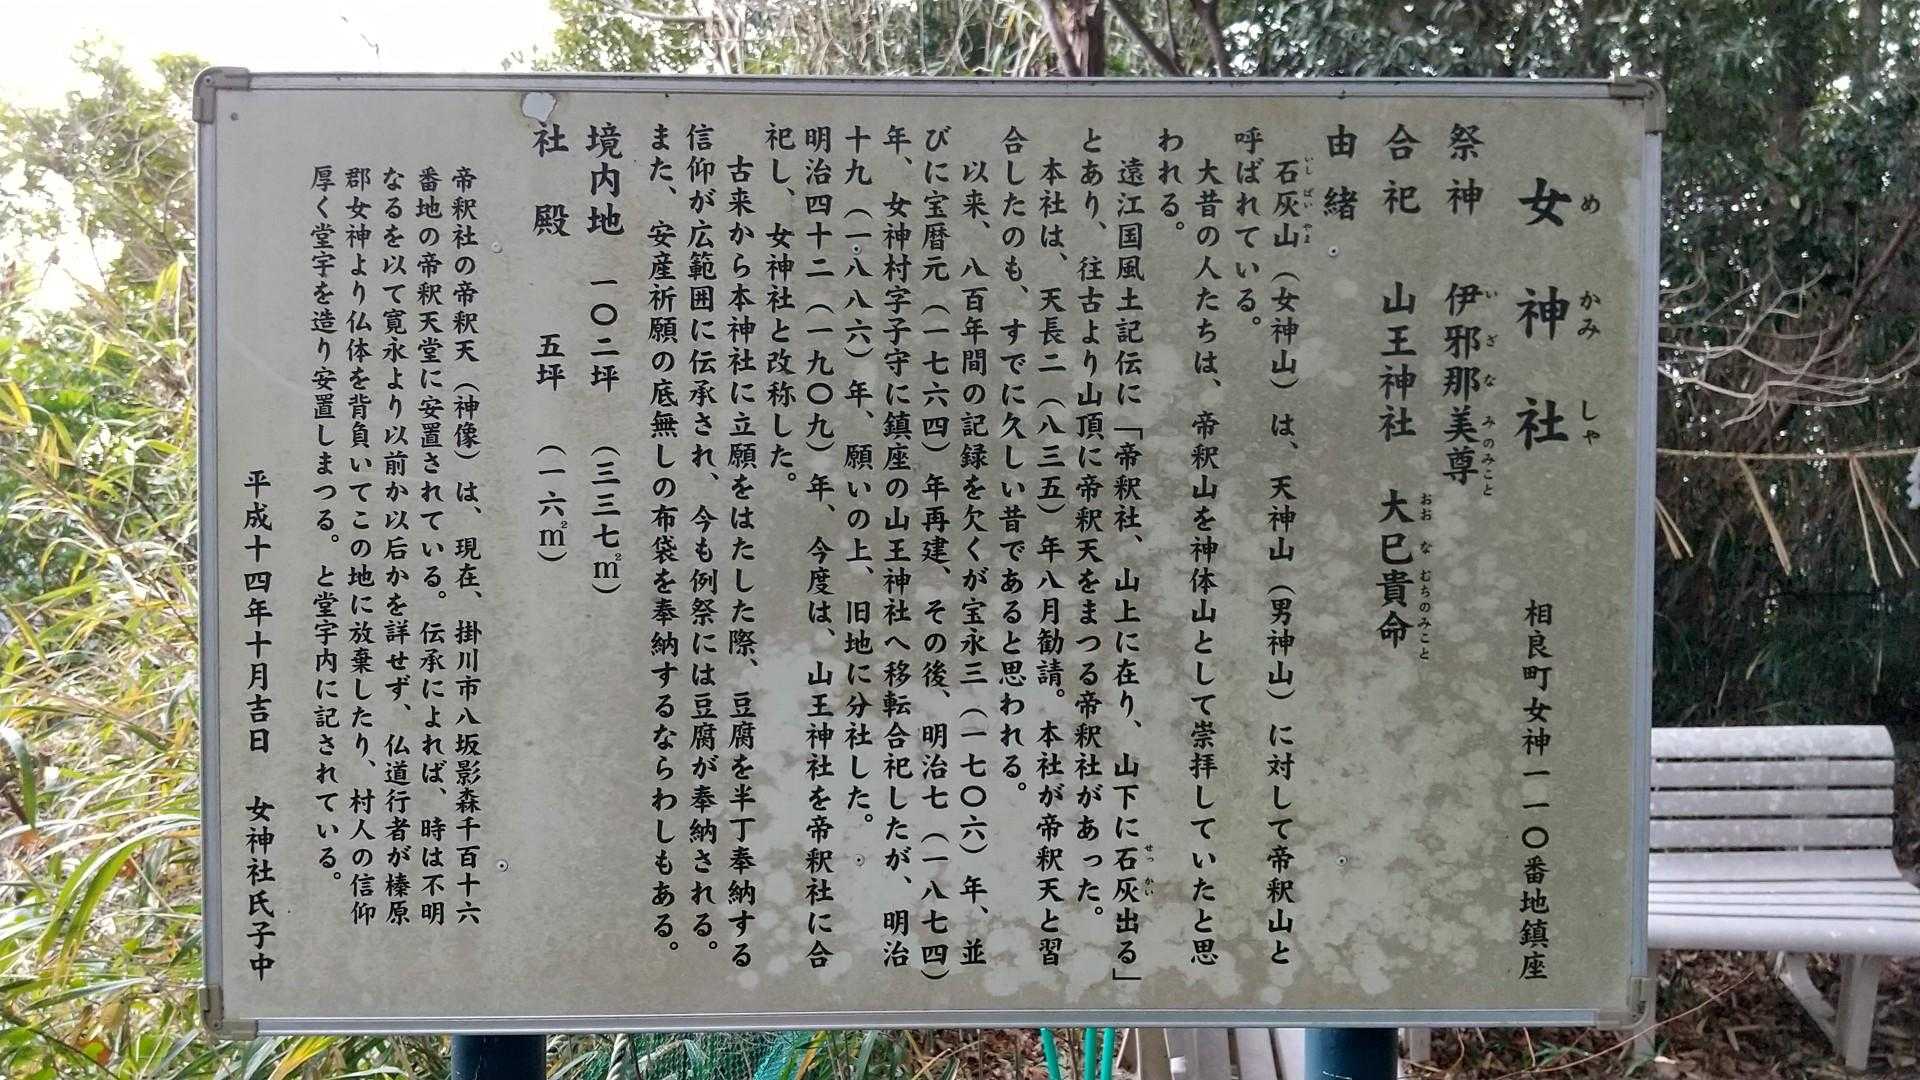 女神社 相良町女神一一〇番地鎮座
めかみしや
祭神 伊邪那美尊
いざなみのみこと
合祀 山王神社 大巳貴命
おおなむちのみこと
由緒
石灰山（女神山）は、天神山（男神山）に対して帝釈山と
いしばいやま
呼ばれている。
大昔の人たちは、帝釈山を神体山として崇拝していたと思
われる。
遠江国風土記伝に「帝釈社、山上に在り、山下に石灰出る」
せっかい
とあり、往古より山頂に帝釈天をまつる帝釈社があった。
本社は、天長二（八三五）年八月勧請。本社が帝釈天と習
合したのも、すでに久しい昔であると思われる。
以来、八百年間の記録を欠くが宝永三（一七〇六）年、並
びに宝暦元（一七六四）年再建、その後、明治七（一八七四）
年、女神村字子守に鎮座の山王神社へ移転合祀したが、明治
十九（一八八六）年、願いの上、旧地に分社した。
明治四十二（一九〇九）年、今度は、山王神社を帝釈社に合
祀し、女神社と改称した。
古来から本神社に立願をはたした際、豆腐を半丁奉納する
信仰が広範囲に伝承され、今も例祭には豆腐が奉納される。
また、安産祈願の底無しの布袋を奉納するならわしもある。
境内地 一〇二坪 （三三七㎡）
社殿 五坪 （一六㎡）
帝釈社の帝釈天（神像）は、現在、掛川市八坂影森千百十六
番地の帝釈天堂に安置されている。伝承によれば、時は不明
なるを以て寛永より以前か以后かを詳せず、仏道行者が榛原
郡女神より仏体を背負いてこの地に放棄したり、村人の信仰
厚く堂宇を造り安置しまつる。と堂宇内に記されている。
平成十四年十月吉日 女神社氏子中